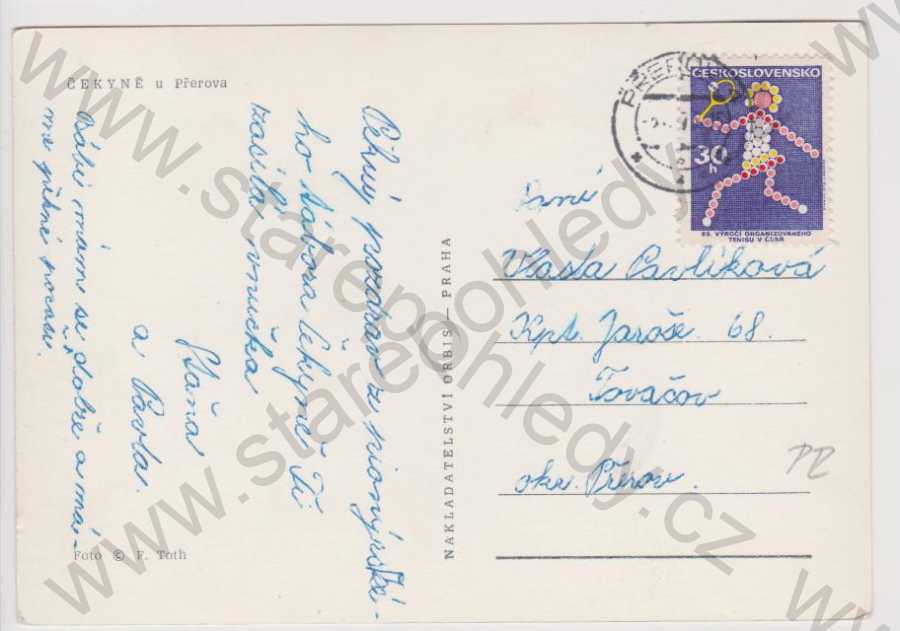 ČEKYNĚ u Přerova
Pěkný pozdrav z pionýrské-
ho tábora Čekyně Ti
zasílá vnučka
Hana
a Pavla.
Babi máme se dobře a má-
me pěkné počasí.
Foto © F. Toth
NAKLADATELSTVÍ ORBIS — PRAHA
PŘEROV
ČESKOSLOVENSKO
30h
80. VÝROČÍ ORGANIZOVANÉHO
TENISU V ČSSR
Paní
Vlasta Pavlíková
Kpt. Jaroše 68.
Tovačov
okr. Přerov.
PR
www.starepohledy.cz